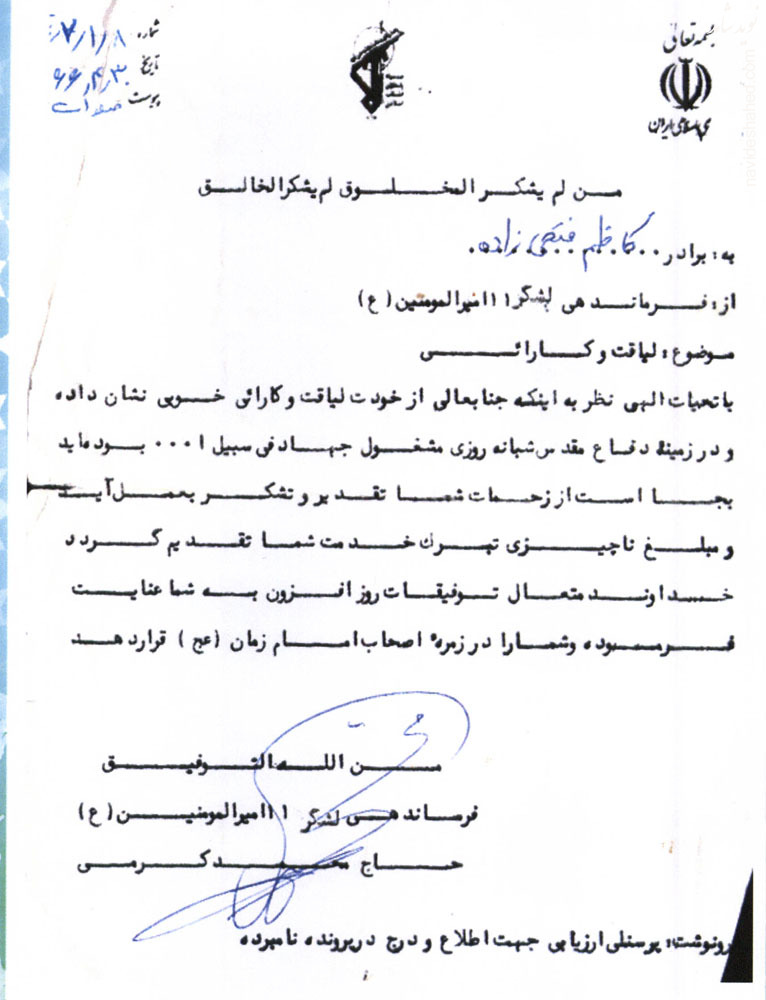 بسمه تعالی
جمهوری اسلامی ایران
شماره ۷/۱/۸
تاریخ ۶۶,۴,۳۰
پیوست
من لم یشکر المخلوق لم یشکر الخالق
به: برادر .. کاظم فتحی زاده.
از: فرماندهی لشگر ۱۱ امیرالمومنین (ع)
موضوع: لیاقت و کارائی
با تحیات الهی نظر به اینکه جنابعالی از خودت لیاقت و کارائی خوبی نشان داده
و در زمینهٔ دفاع مقدس شبانه روزی مشغول جهاد فی سبیل ا ۰۰۰ بوده‌اید
بجا است از زحمات شما تقدیر و تشکر بعمل آید
و مبلغ ناچیزی تبرک خدمت شما تقدیم گردد
خداوند متعال توفیقات روز افزون به شما عنایت
فرموده و شما را در زمرهٔ اصحاب امام زمان (عج) قرار دهد
من الله التوفیق
فرماندهی لشگر ۱۱ امیرالمومنین (ع)
حاج محمد کرمی
رونوشت: پرسنلی ارزیابی جهت اطلاع و درج در پرونده نامبرده
navideshahed.com